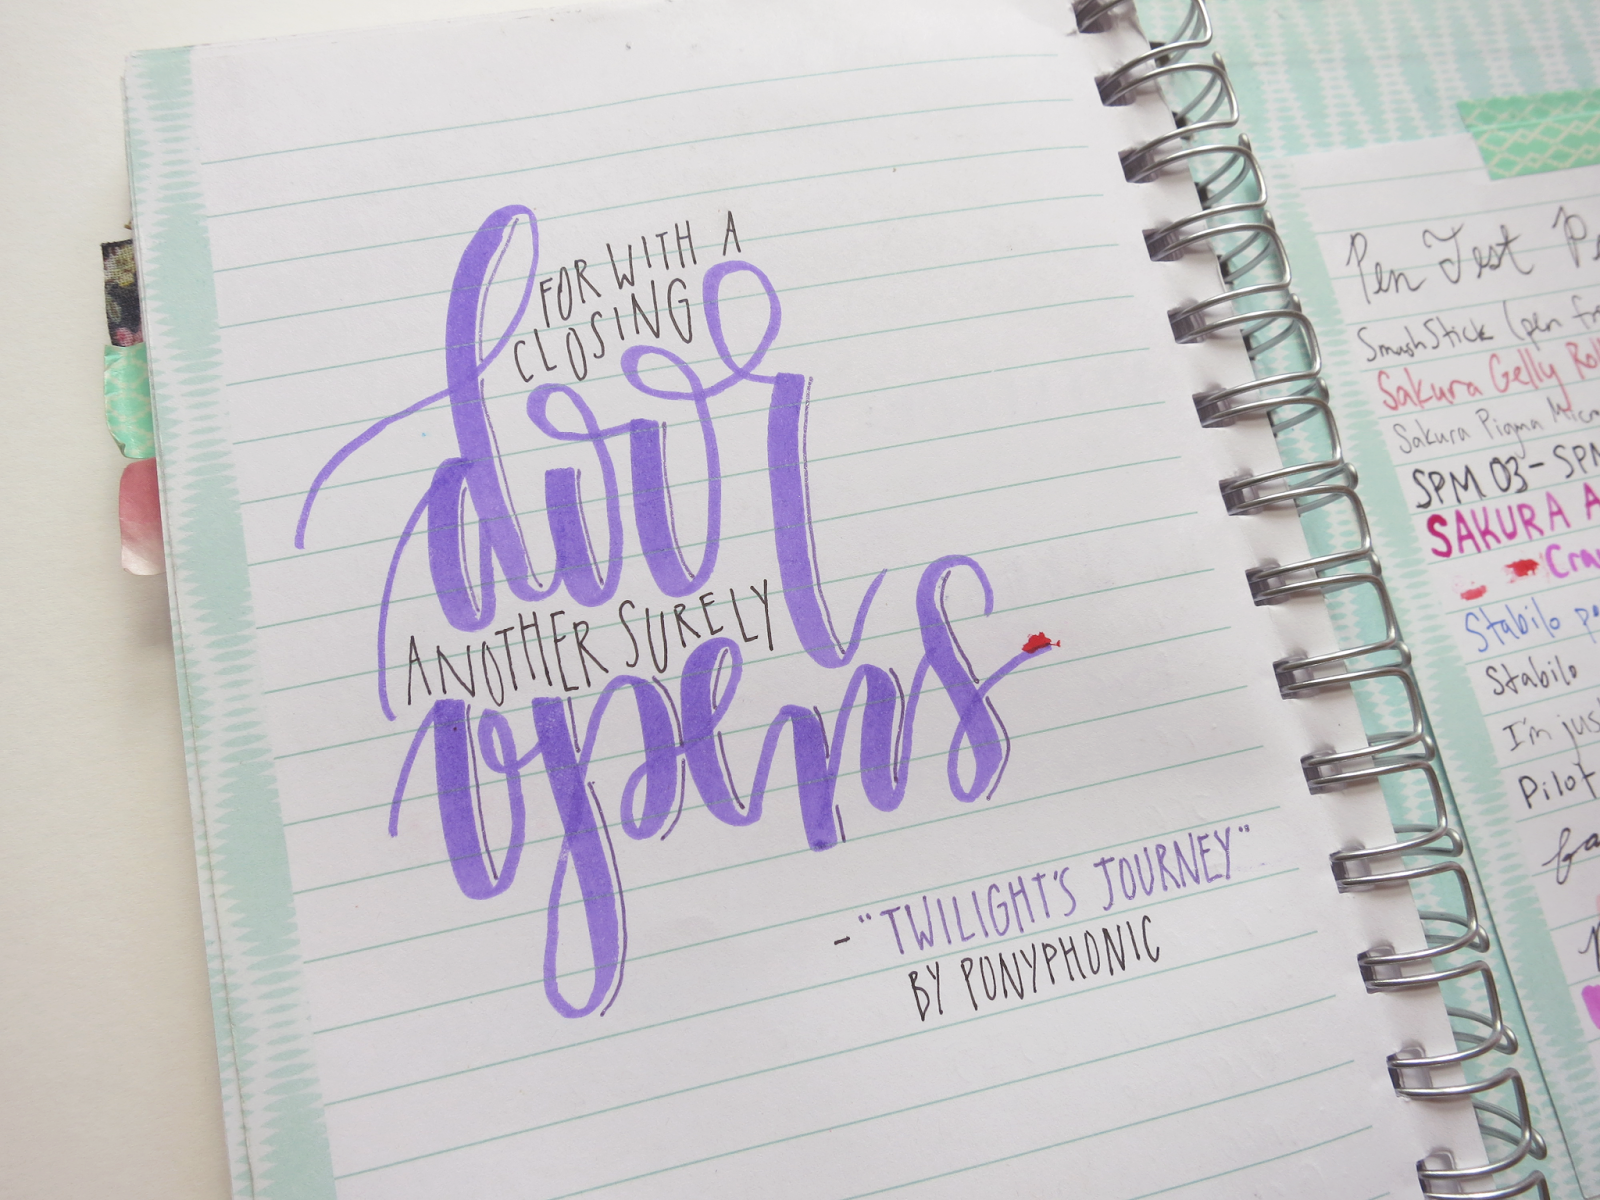 FOR WITH A
CLOSING
door
ANOTHER SURELY
opens
- "TWILIGHT'S JOURNEY"
BY PONYPHONIC
Pen Test
SmashStick (pen
Sakura Gelly Roll
Sakura Pigma Micr
SPM 03 - SPM
SAKURA
Stabilo
Stabilo
I'm jus
Pilot